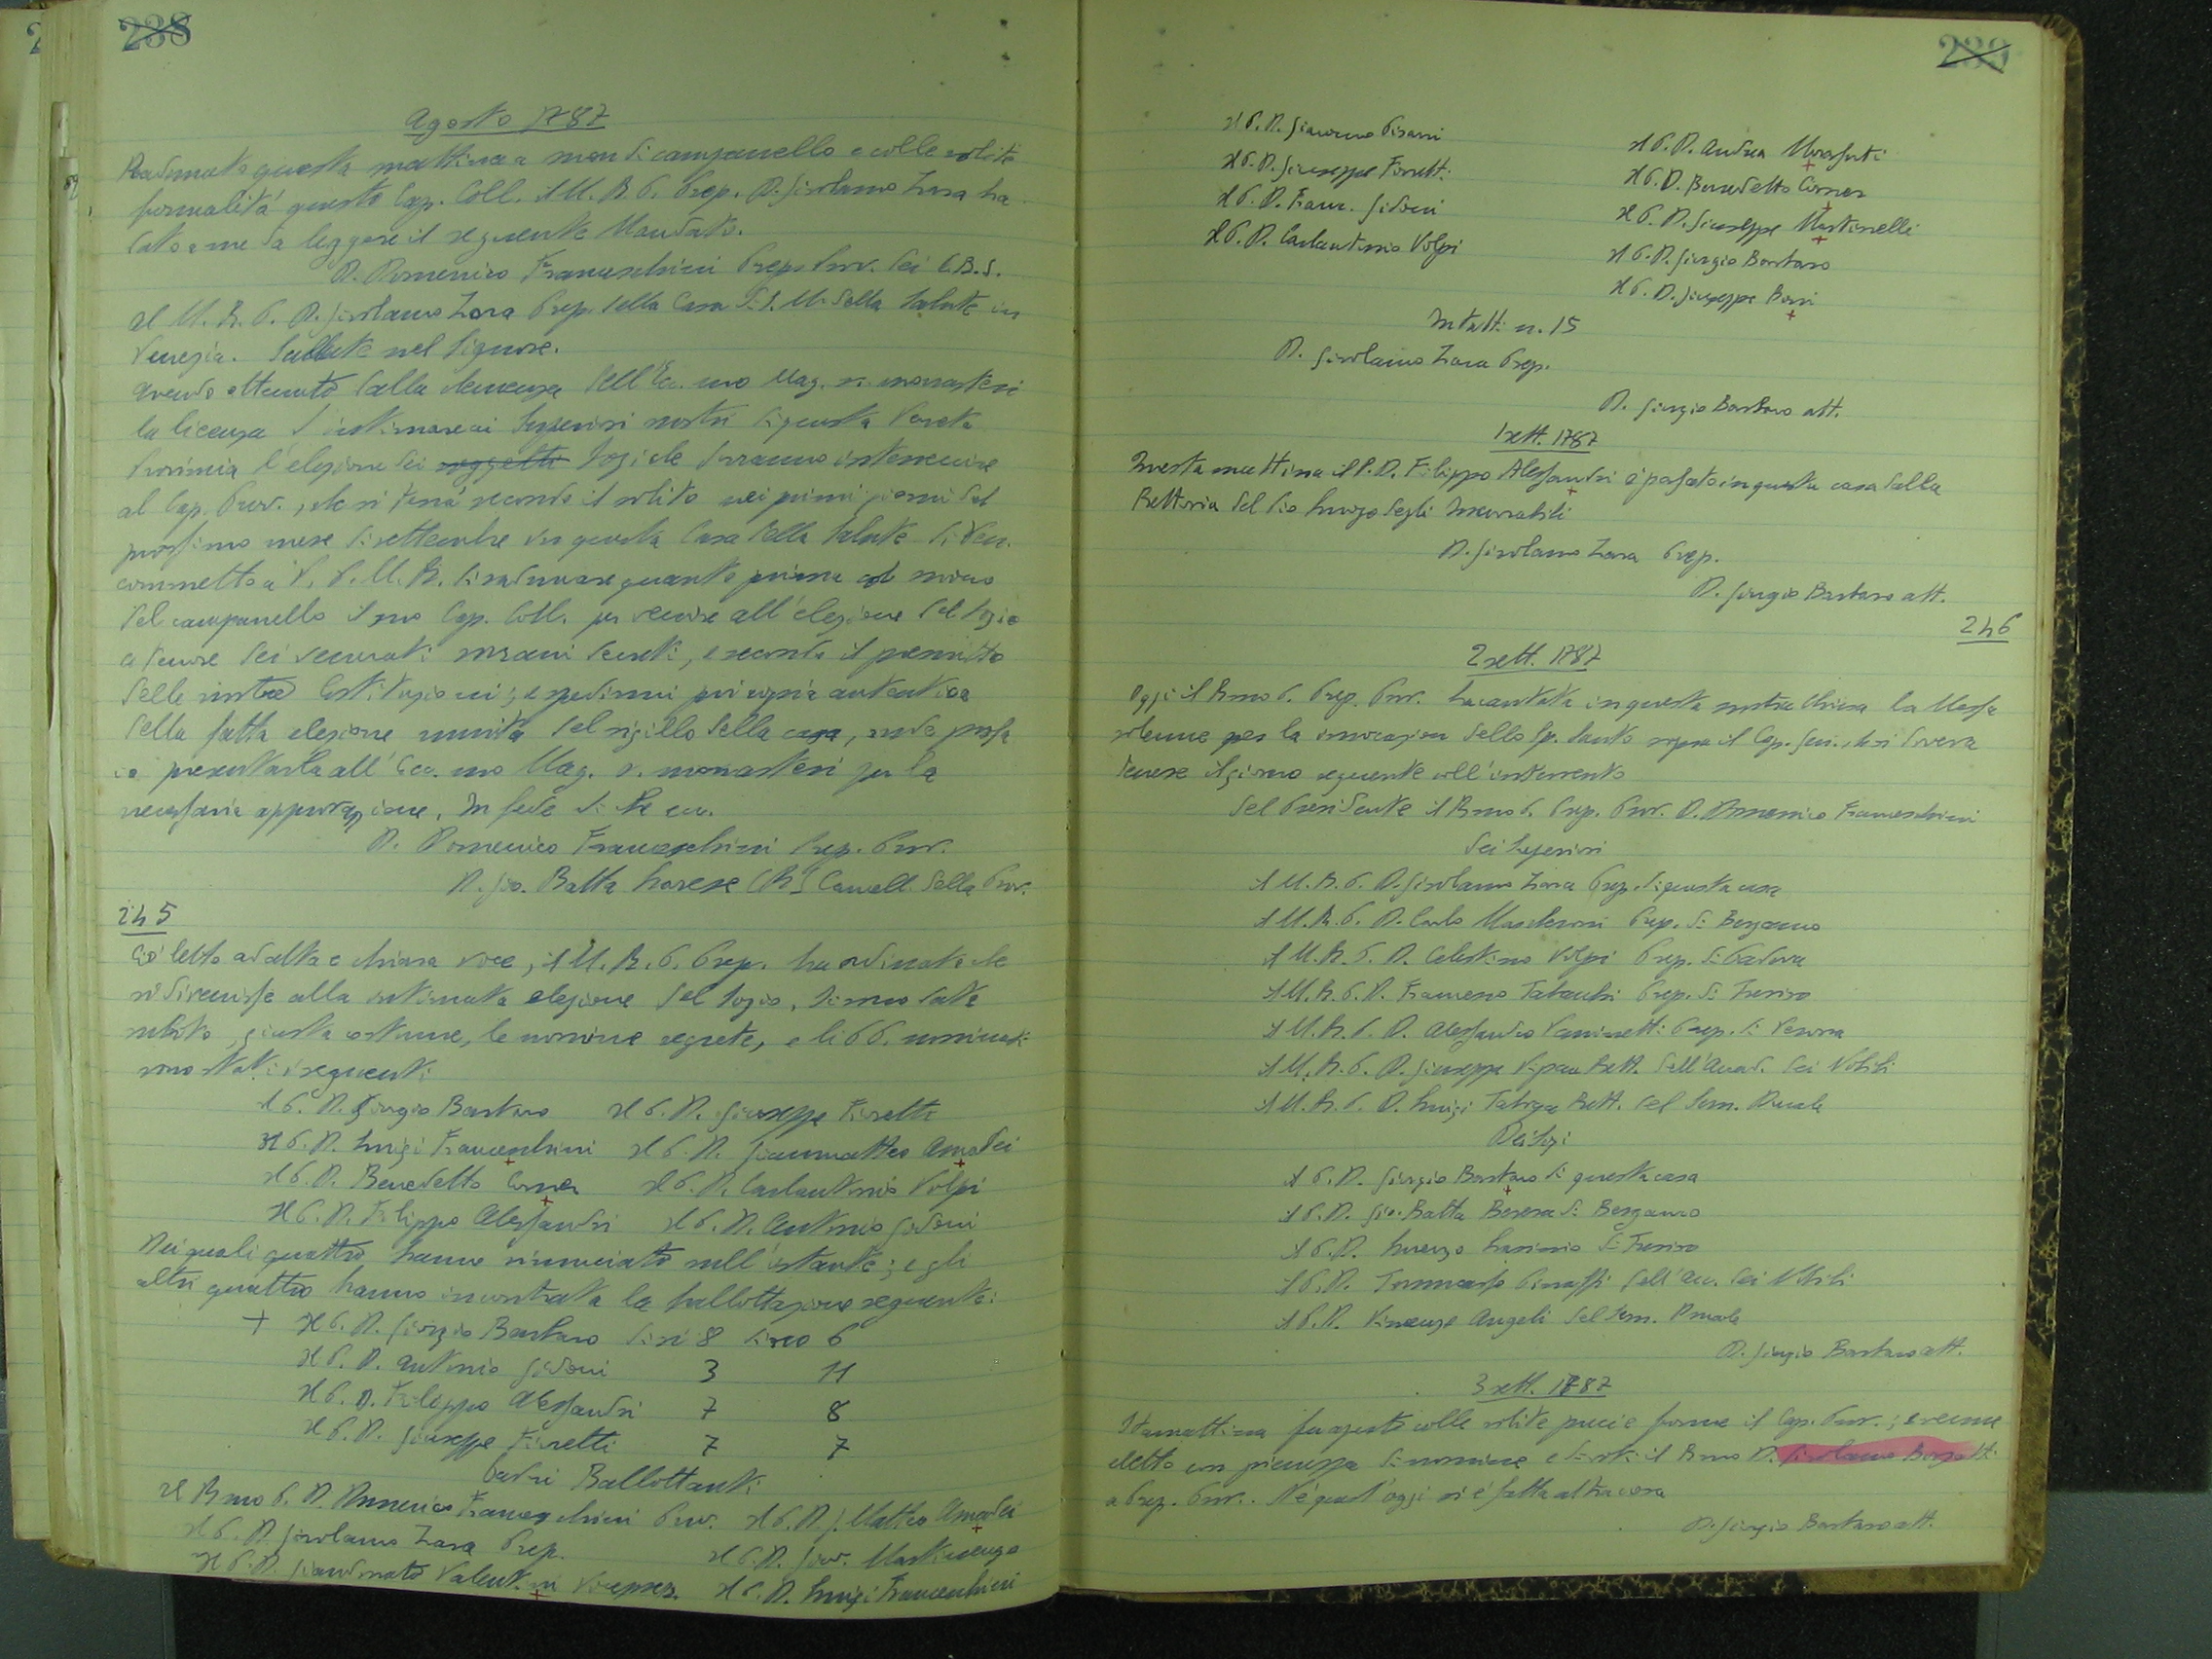 238
Agosto 1787
Radunato questa mattina a suon di campanello e colle solite
formalità questo Cap. Coll. il M. R. P. Prep. D. Girolamo Zara ha
dato a me da leggere il seguente Mandato.
D. Domenico Franceschini Prep. Prov. dei C.R.S.
Al M. R. P. D. Girolamo Zara Prep. della Casa di S. M. della Salute in
Venezia. Salute nel Signore.
Avendo ottenuto dalla clemenza dell'Ecc.mo Mag. s. monasteri
la licenza d'intimare ai Superiori nostri di questa Veneta
Provincia l'elezione dei soggetti Sozi che dovranno intervenire
al Cap. Prov., che si terrà secondo il solito nei primi giorni del
prossimo mese di settembre in questa Casa della Salute di Ven.
commetto a V. P. M. R. di radunare quanto prima al suono
del campanello il suo Cap. Coll. per venire all'elezione del Sozio
a tenore dei venerati sovrani decreti, e secondo il prescritto
delle nostre Costituzioni; e spedirmi poi copia autentica
della fatta elezione munita del sigillo della casa, onde possa
io presentarla all'Ecc.mo Mag. s. monasteri per la
necessaria approvazione. In fede di che ecc.
D. Domenico Franceschini Prep. Prov.
D. Gio. Batta Lorese CRS Cancell. della Prov.
245
Ciò letto ad alta e chiara voce, il M. R. P. Prep. ha ordinato che
si divenisse alla intimata elezione del Sozio. Si sono date
subito, giusta costume, le nomine segrete, e li PP. nominati
sono stati i seguenti
Il P. D. Giorgio Barbaro Il P. D. Giuseppe Fioretti
Il P. D. Luigi Franceschini Il P. D. Gianmatteo Amadei
Il P. D. Benedetto Corner Il P. D. Carlantonio Volpi
Il P. D. Filippo Alessandri Il P. D. Antonio Gidoni
Dei quali quattro hanno rinunciato sull'istante; e gli
altri quattro hanno incontrata la ballottazione seguente:
+ Il P. D. Giorgio Barbaro di sì 8 di no 6
Il P. D. Antonio Gidoni 3 11
Il P. D. Filippo Alessandri 7 8
Il P. D. Giuseppe Fioretti 7 7
Padri Ballottanti
Il Rmo P. D. Domenico Franceschini Prov. Il P. D. G. Matteo Amadei
Il P. D. Girolamo Zara Prep. Il P. D. Giov. Martinengo
Il P. D. Giandonato Valentini Viceprep. Il P. D. Luigi Franceschini
239
Il P. D. Giacomo Pisani
Il P. D. Giuseppe Fioretti
Il P. D. Franc. Gidoni
Il P. D. Carlantonio Volpi
Il P. D. Andrea
Il P. D. Benedetto Corner
Il P. D. Giuseppe Martinelli
Il P. D. Giorgio Barbaro
Il P. D. Giuseppe Bossi
In tutti n. 15
D. Girolamo Zara Prep.
D. Giorgio Barbaro att.
1 sett. 1787
Questa mattina il P. D. Filippo Alessandri è passato in questa casa dalla
Rettoria del Pio Luogo degli Incurabili
D. Girolamo Zara Prep.
D. Giorgio Barbaro att.
246
2 sett. 1787
Oggi il Rmo P. Prep. Prov. ha cantata in questa nostra Chiesa la Messa
solenne per la invocazion dello Sp. Santo sopra il Cap. che si doveva
tenere il giorno seguente coll'intervento
del Presidente il Rmo P. Prep. Prov. D. Domenico Franceschini
dei Superiori
Il M. R. P. D. Girolamo Zara Prep. di questa casa
Il M. R. P. D. Carlo Mascheroni Prep. di Bergamo
Il M. R. P. D. Celestino Volpi Prep. di Padova
Il M. R. P. D. Francesco Prep. di Treviso
Il M. R. P. D. Alessandro Vaninetti Prep. di Verona
Il M. R. P. D. Giuseppe Rett. dell'Accad. dei Nobili
Il M. R. P. D. Luigi Rett. del Sem. Ducale
Dei Sozi
Il P. D. Giorgio Barbaro di questa casa
Il P. D. Gio. Batta Beresa di Bergamo
Il P. D. Lorenzo di Treviso
Il P. D. Tommaso dell'Acc. dei Nobili
Il P. D. Vincenzo Angeli del Sem. Ducale
D. Giorgio Barbaro att.
3 sett. 1787
Stamattina fu aperto colle solite preci e forme il Cap. Prov.; e venne
eletto con pienezza di nomine e di voti il Rmo D. Girolamo
a Prep. Prov. Né quest'oggi si è fatta altra cosa
D. Giorgio Barbaro att.